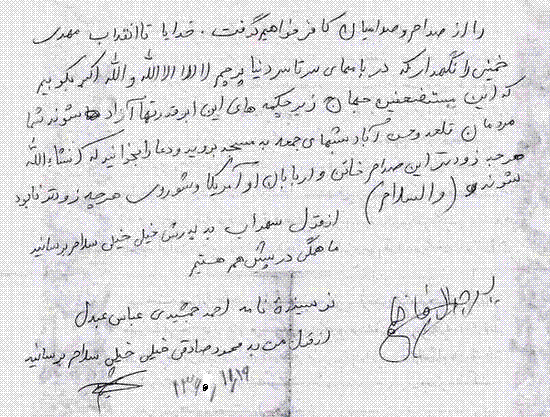 را از صدام و صدامیان کافر خواهیم گرفت. خدایا تا انقلاب مهدی
خمینی را نگهدار که در بامهای سرتاسر دنیا پرچم لا اله الا الله و الله اکبر بکوبیم
که این مستضعفین جهان زیر چکمه های این ابرقدرتها آزاد شوند شما
مردمان قلعه حسن آباد شبهای جمعه به مسجد بروید و دعا را بخوانید که انشاءالله
هرچه زودتر این صدام خائن و اربابان او آمریکا و شوروی هرچه زودتر نابود
شوند (والسلام)
از قول سهراب به پدرش خیلی خیلی سلام برسانید
ما همگی در پیش هم هستیم
نویسنده نامه احمد جمشیدی عباس عبدل
از قول من به محمود صادقی خیلی خیلی سلام برسانید